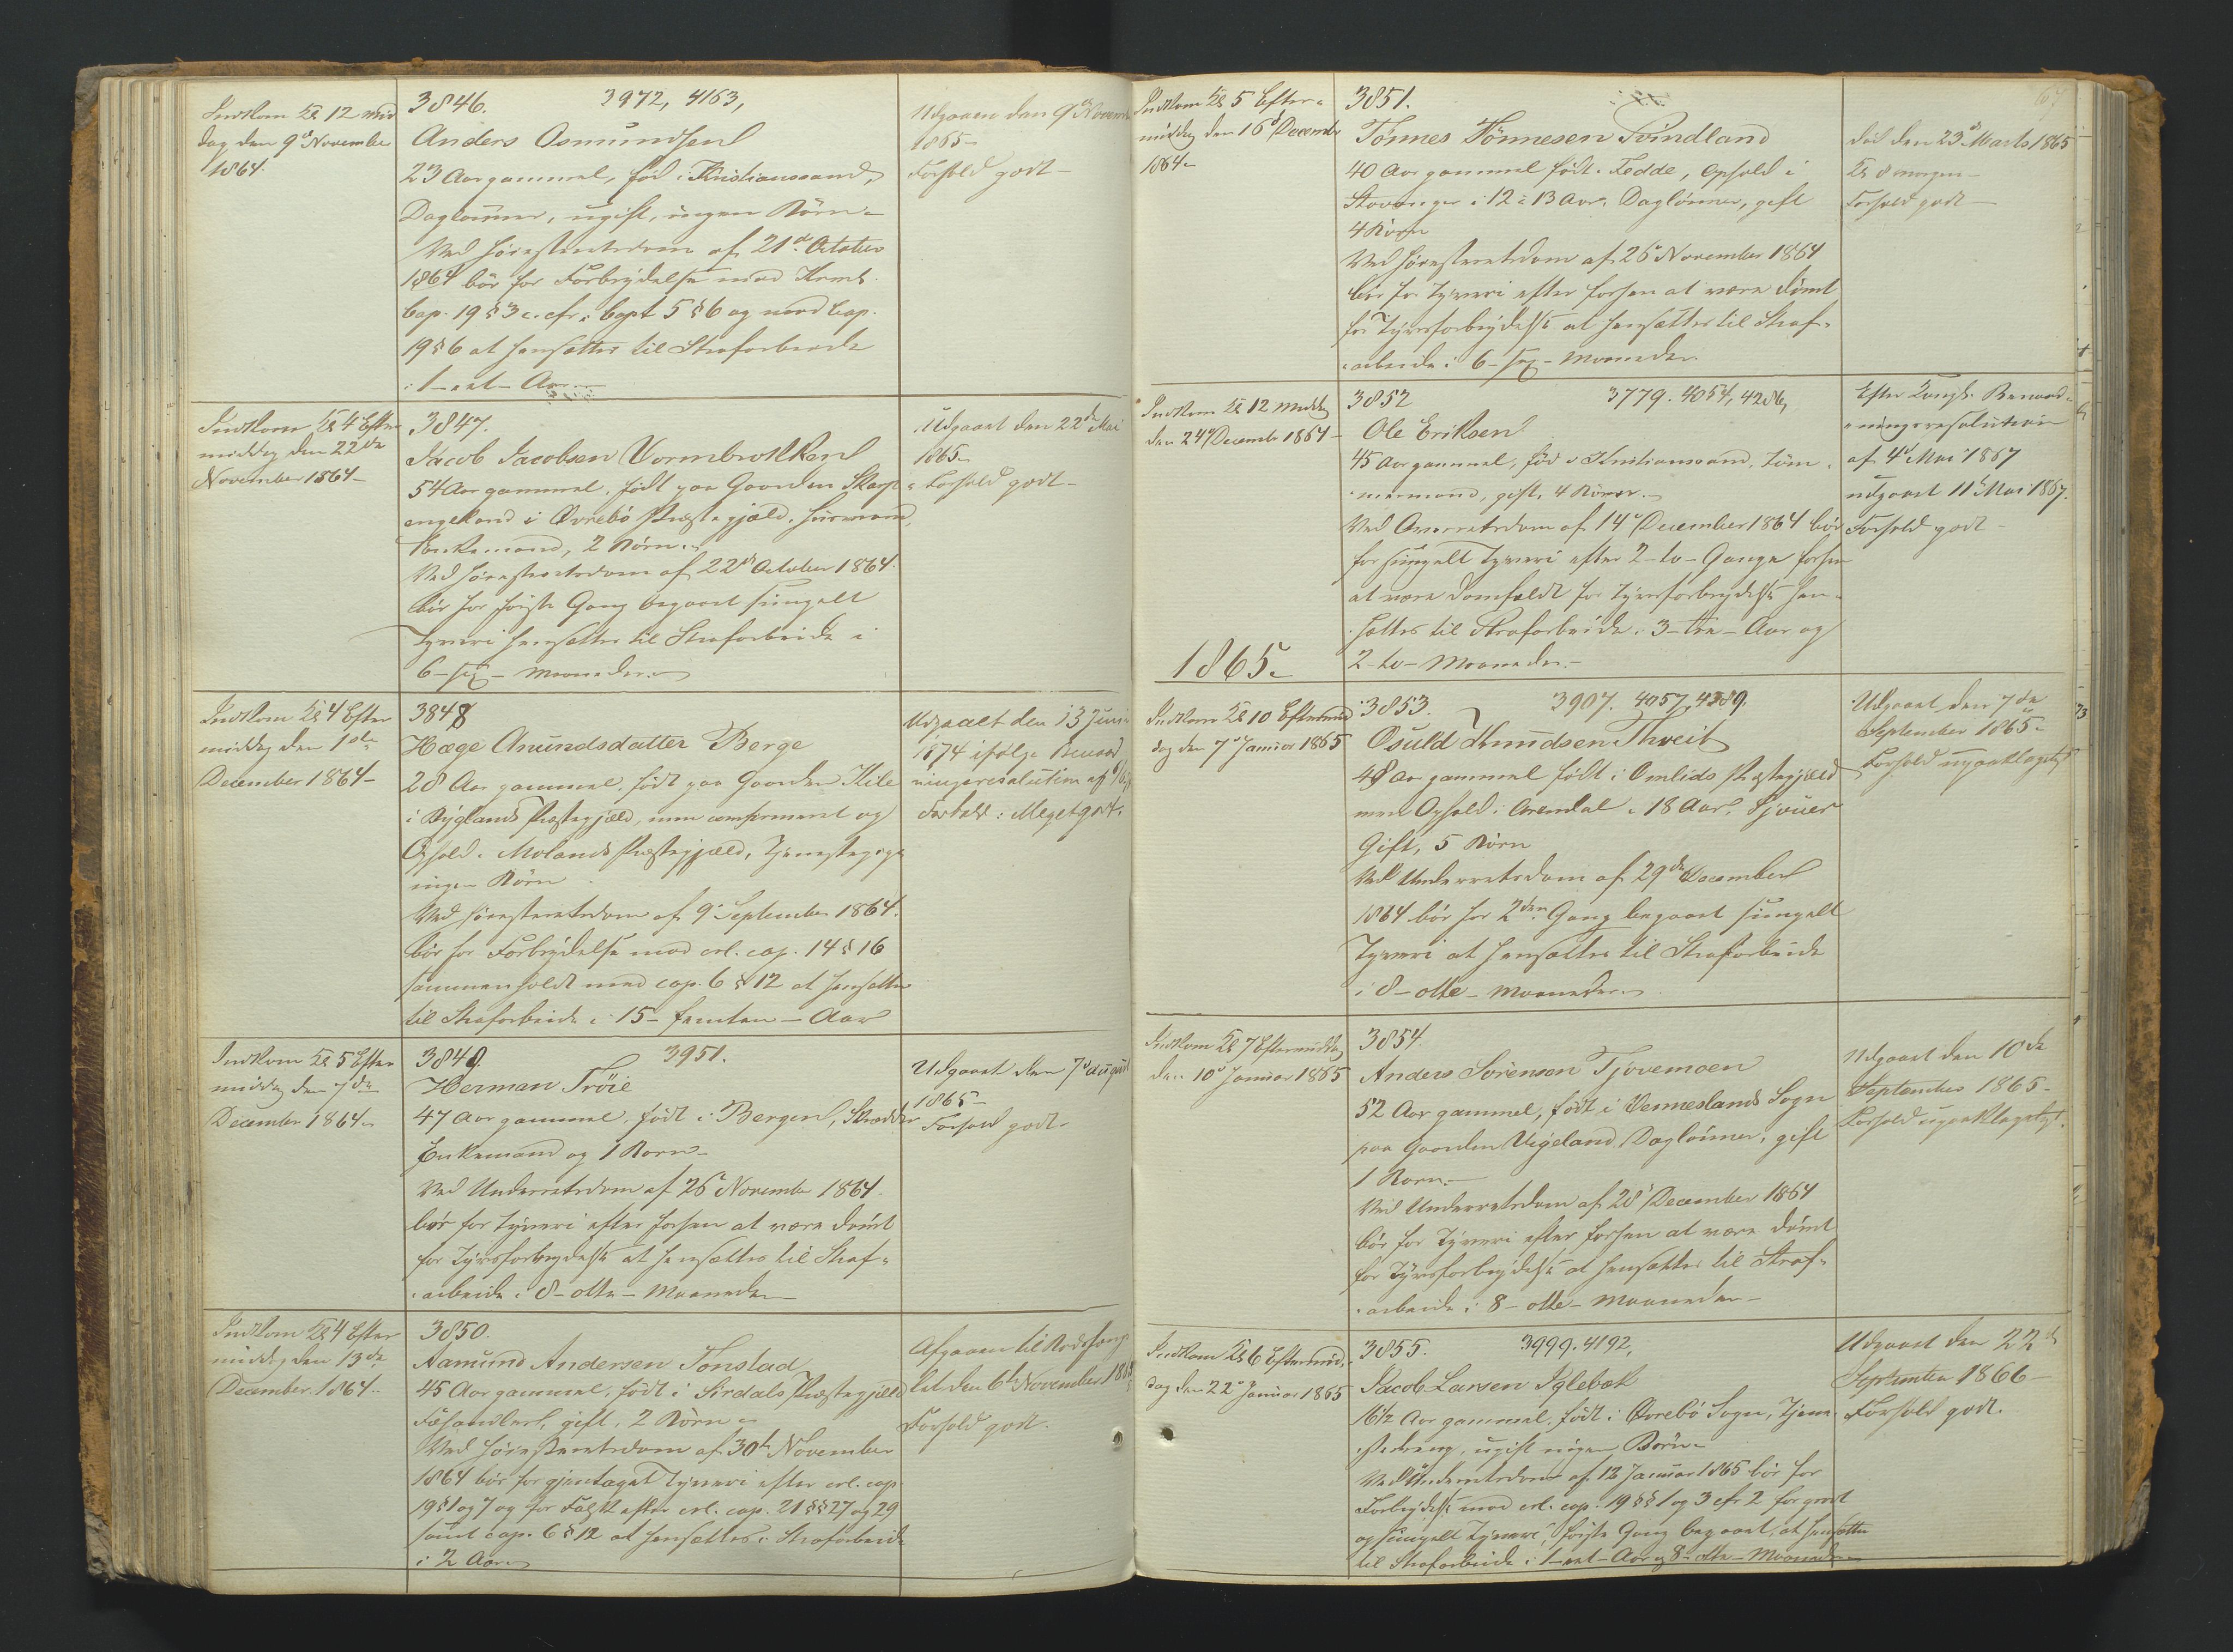 Indkom Kl 12 mid
dag den 9de November
1864.
3846. 3972, 4163,
Anders Osmundsen
23 Aar gammel, født i Kristianssand,
Daglønner, ugift, ingen Børn
Ved Høiesteretsdom af 21de October
1864 bør for Forbrydelse mod Krml.
Cap. 19 § 3 c. cfr. Capt 5 § 6 og mod Cap.
19 § 6 at hensættes til Strafarbeide
i 1 - eet - Aar
Udgaaen den 9de November
1865
Forhold godt
Indkom Kl 4 Efter
middag den 22de
November 1864
3847.
Jacob Jacobsen Vormbrokken
54 Aar gammel, født paa Gaarden Skarp
engeland i Øvrebø Præstegjæld, Huusmand,
Enkemand, 2 Børn
Ved Høiesteretsdom af 22de October 1864
bør for første Gang begaaet simpelt
Tyveri hensættes til Strafarbeide i
6 - sex - Maaneder
Udgaaet den 22de Mai
1865
Forhold godt
Indkom Kl 4 Efter
middag den 1ste
December 1864
3848
Hæge Anundsdatter Berge
28 Aar gammel, født paa Gaarden Kile
i Byglands Præstegjæld, men confirmeret og
Ophold i Molands Præstegjæld, Tjenestepige
ingen Børn
Ved Høiesteretsdom af 9de September 1864
bør for Forbrydelse mod crl. cap. 14 § 16
sammenholdt med cap. 6 § 12 at hensættes
til Strafarbeide i 15 - femten - Aar
Udgaaet den 13 Juni
1874 ifølge Benaad
ningsresolution af
Forhold: Meget godt.
Indkom Kl 5 Efter
middag den 7de
December 1864
3849. 3951.
Herman Trøie
47 Aar gammel, født i Bergen, Skrædder
Enkemand og 1 Barn
Ved Underretsdom af 26de November 1864
bør for Tyveri efter forhen at være dømt
for Tyvsforbrydelse at hensættes til Straf
arbeide i 8 - otte - Maaneder
Udgaaet den 7de August
1865
Forhold godt
Indkom Kl 4 Efter
middag den 13de
December 1864
3850.
Aamund Andersen Tonstad
45 Aar gammel, født i Sirdals Præstegjæld
Fæhandler, gift, 2 Børn
Ved Høiesteretsdom af 30te November
1864 bør for gjentaget Tyveri efter crl. cap
19 § 1 og 7 og for Falsk efter crl. cap. 21 §§ 27 og 29
samt cap. 6 § 12 at hensættes i Strafarbeide
i 2 Aar
Afgaaen til Bodsfæng
let den 6te November
Forhold godt.
Indkom Kl 5 Efter
middag den 16de December
1864
3851.
Tønnes Tønnesen Svindland
40 Aar gammel født i Fedde, Ophold i
Stavanger i 12 à 13 Aar, Daglønner, gift
4 Børn
Ved Høiesteretsdom af 26de November 1864
bør for Tyveri efter forhen at være dømt
for Tyvsforbrydelse at hensættes til Straf
arbeide i 6 - sex - Maaneder
67
Død den 23de Marts 1865
Kl 8 morgen
Forhold godt
Indkom Kl 12 Middag
den 24de December 1864
3852 3779. 4054, 4286,
Ole Eriksen
45 Aar gammel, født i Kristianssand, Tøm
mermand, gift, 4 Børn
Ved Overretsdom af 14de December 1864 bør
for simpelt Tyveri efter 2 - to - Gange forhen
at være domfældt for Tyvsforbrydelse hen
sættes til Strafarbeide i 3 - tre - Aar og
2 - to - Maaneder
Efter Kongl. Benaad
ningsresolution
af 4de Mai 1867
udgaaet 11te Mai 1867.
Forhold godt
1865
Indkom Kl 10 Eftermid
dag den 7de Januar 1865
3853. 3907. 4057, 4389.
Osuld Knudsen Thveit
48 Aar gammel født i Omlids Præstegjæld
men Ophold i Arendal i 18 Aar, Sjouer
Gift, 5 Børn
Ved Underretsdom af 29de December
1864 bør for 2den Gang begaaet simpelt
Tyveri at hensættes til Strafarbeide
i 8 - otte - Maaneder
Udgaaet den 7de
September 1865
Forhold upaaklageligt
Indkom Kl 7 Eftermiddag
den 10de Januar 1865
3854.
Anders Sørensen Tjovemoen
52 Aar gammel, født i Venneslands Sogn
paa Gaarden Vigeland, Daglønner, gift
1 Barn
Ved Underretsdom af 28de December 1864
bør for Tyveri efter forhen at være dømt
for Tyvsforbrydelse at hensættes til Straf
arbeide i 8 - otte - Maaneder
Udgaaet den 10de
September 1865
Forhold upaaklageligt.
Indkom Kl 6 Eftermid
dag den 22de Januar 1865
3855. 3999. 4192,
Jacob Larsen Iglebæk
16 1/2 Aar gammel, født i Øvrebø Sogn, Tjene
stedreng, ugift ingen Børn
Ved Underretsdom af 12 Januar 1865 bør for
Forbrydelse mod crl. cap. 19 §§ 1 og 3 cfr 2 for grovt
og simpelt Tyveri, første Gang begaaet, at hensættes
til Strafarbeide i 1 - eet - Aar og 8 - otte - Maaneder
Udgaaet den 22de
September 1866
Forhold godt.